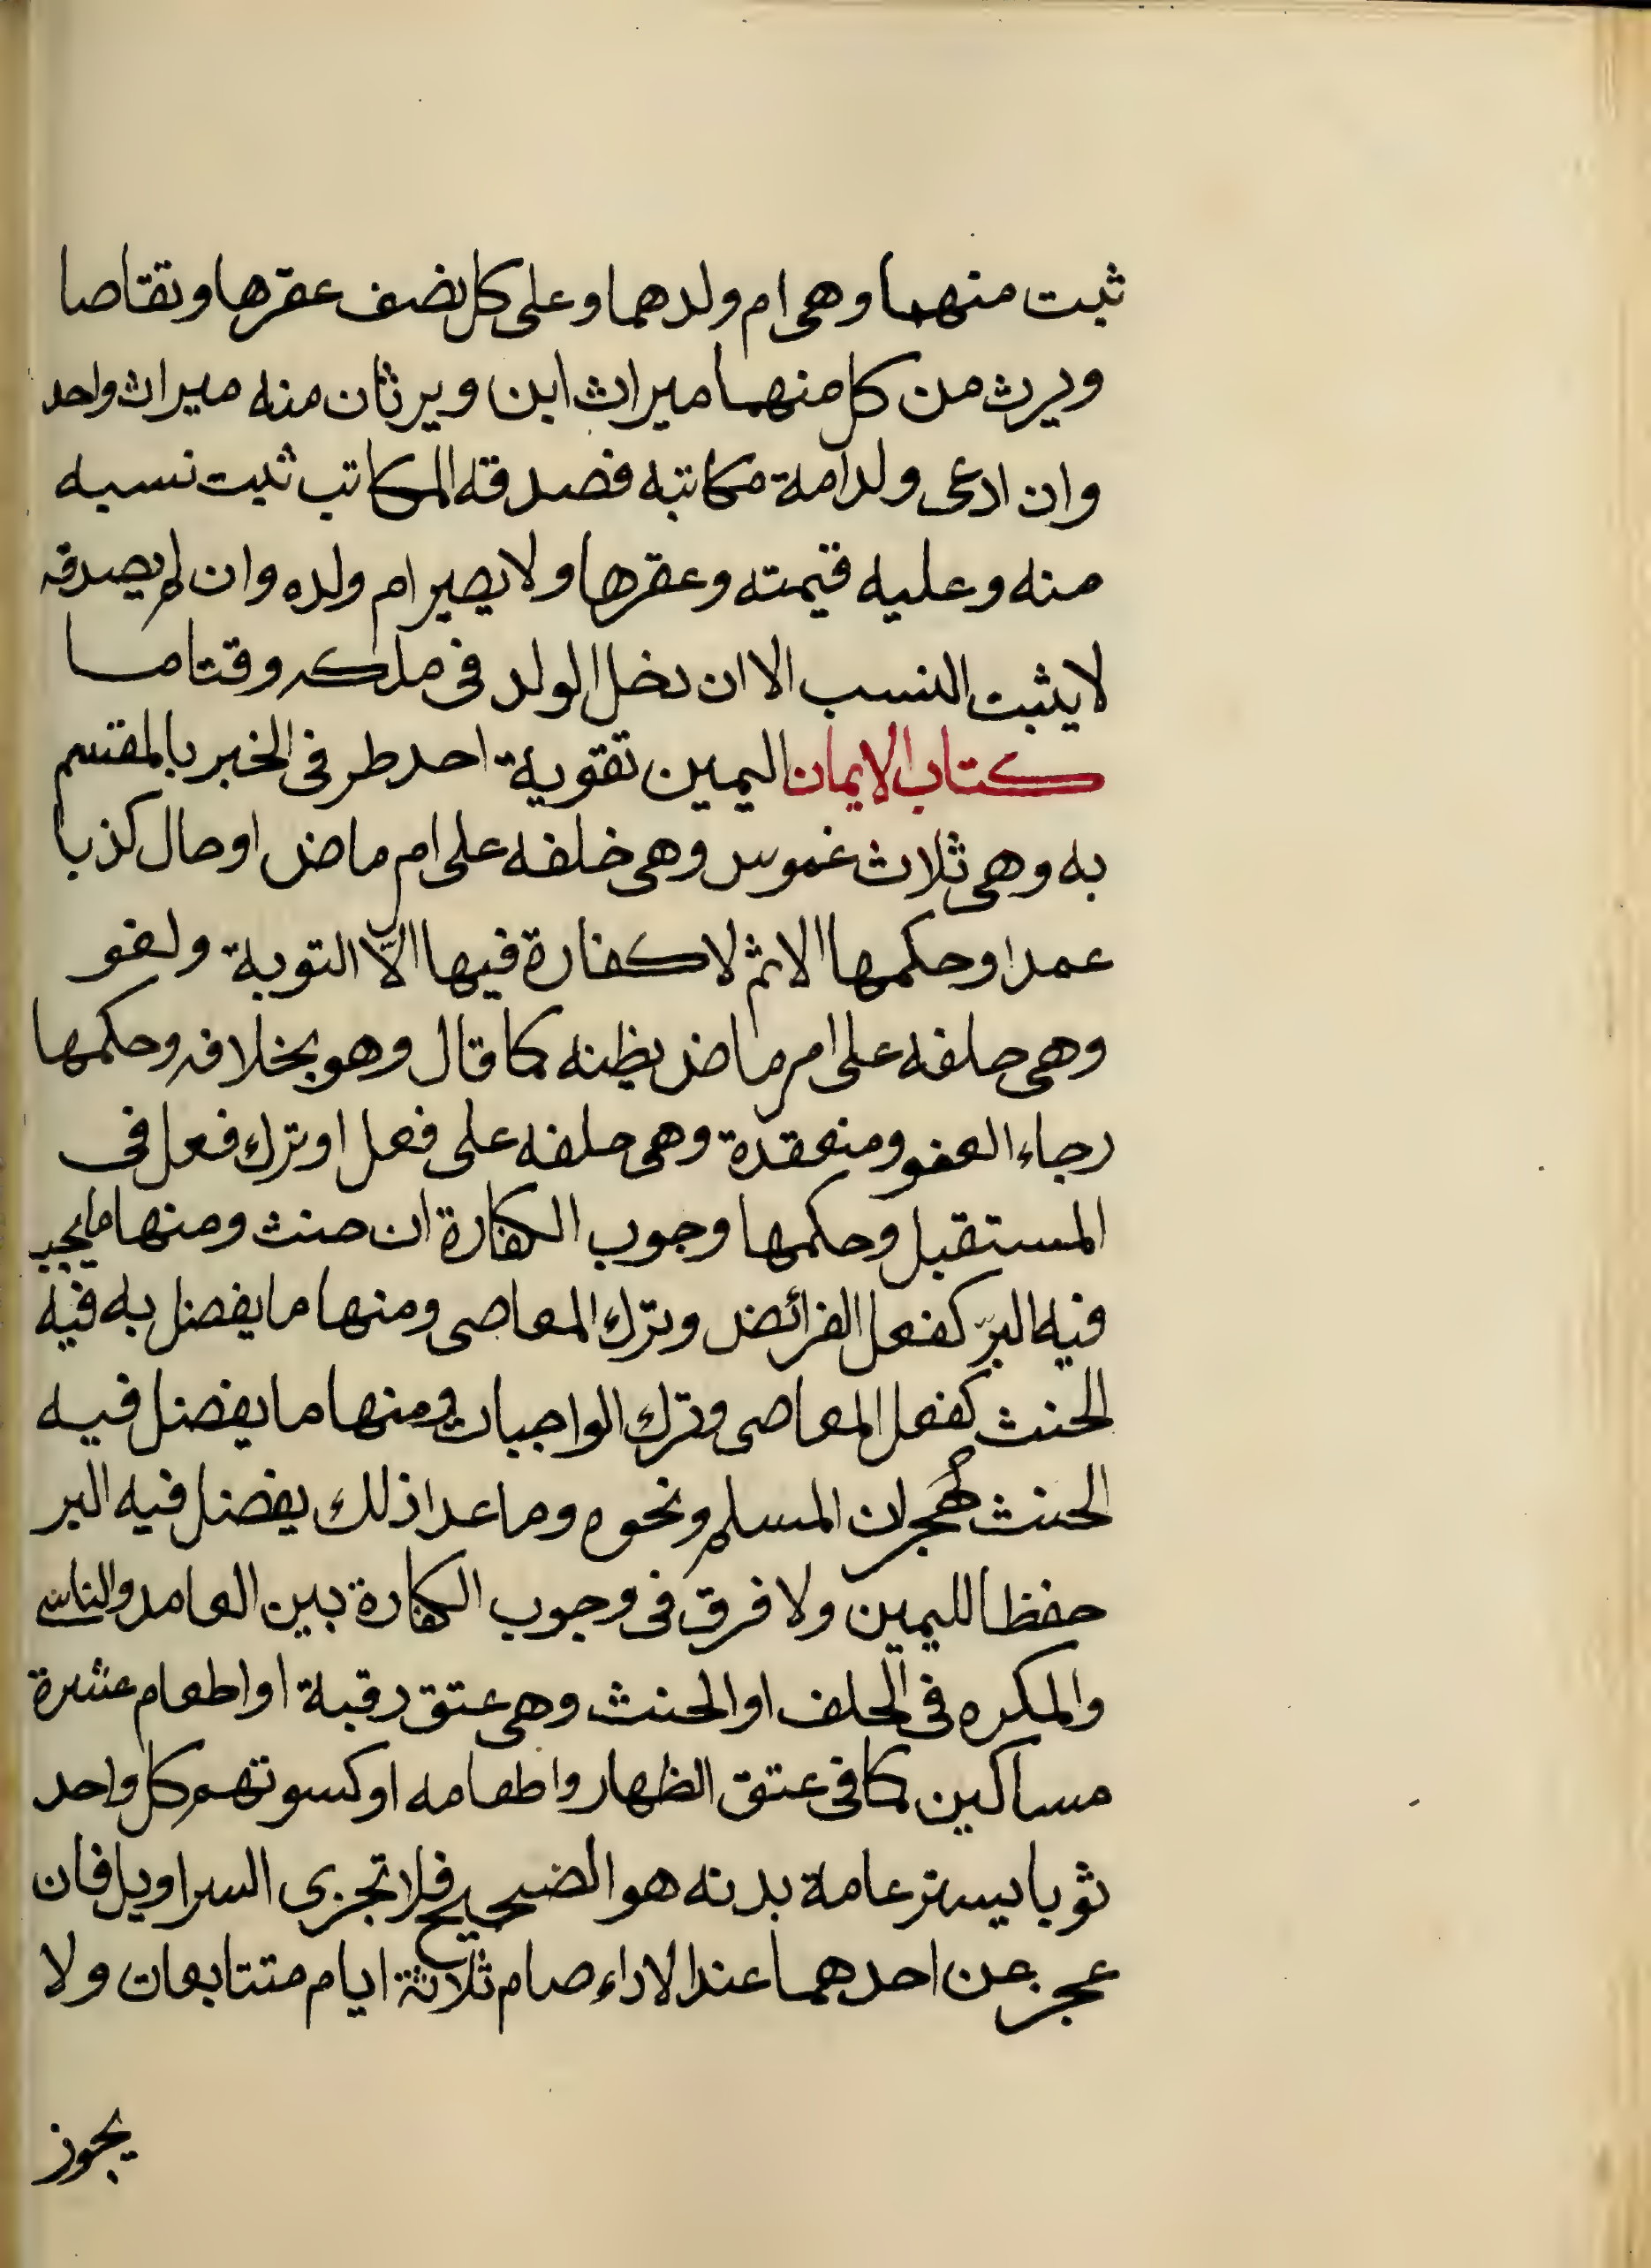 ثبت منهما وهى ام ولدهما وعلى كل نصف عقرها وتقاصا
ويرث من كل منهما ميراث ابن ويرثان منه ميراث واحد
وان ادعى ولد امة مكاتبه فصدقه المكاتب ثبت نسبه
منه وعليه قيمته وعقرها ولا يصير ام ولده وان لم يصدقه
لا يثبت النسب الا ان دخل الولد فى ملكه وقتا ما
كتاب الايمان اليمين تقوية احد طرفى الخبر بالمقسم
به وهى ثلاث غموس وهى خلفه على امر ماض او حال كذبا
عمدا وحكمها الاثم لا كفارة فيها الّا التوبة ولغو
وهى حلفه على امر ماض يظنه كما قال وهو بخلافه وحكمها
رجاء العفو ومنعقدة وهى حلفه على فعل او ترك فعل فى
المستقبل وحكمها وجوب الكفارة ان حنث ومنها ما يجب
فيه البرّ كفعل الفرائض وترك المعاصى ومنها ما يفضل به فيه
الحنث كفعل المعاصى وترك الواجبات ومنها ما يفضل فيه
الحنث كهجران المسلم ونحوه وما عدا ذلك يفضل فيه البر
حفظا لليمين ولا فرق فى وجوب الكفارة بين العامد والناسى
والمكره فى الحلف او الحنث وهى عتق رقبة او اطعام عشرة
مساكين كما فى عتق الظهار واطعامه او كسوتهم كل واحد
ثوبا يستر عامة بدنه هو الضحيح فلا تجزى السراويل فان
عجز عن احدهما عند الاداء صام ثلاثة ايام متتابعات ولا
يجوز